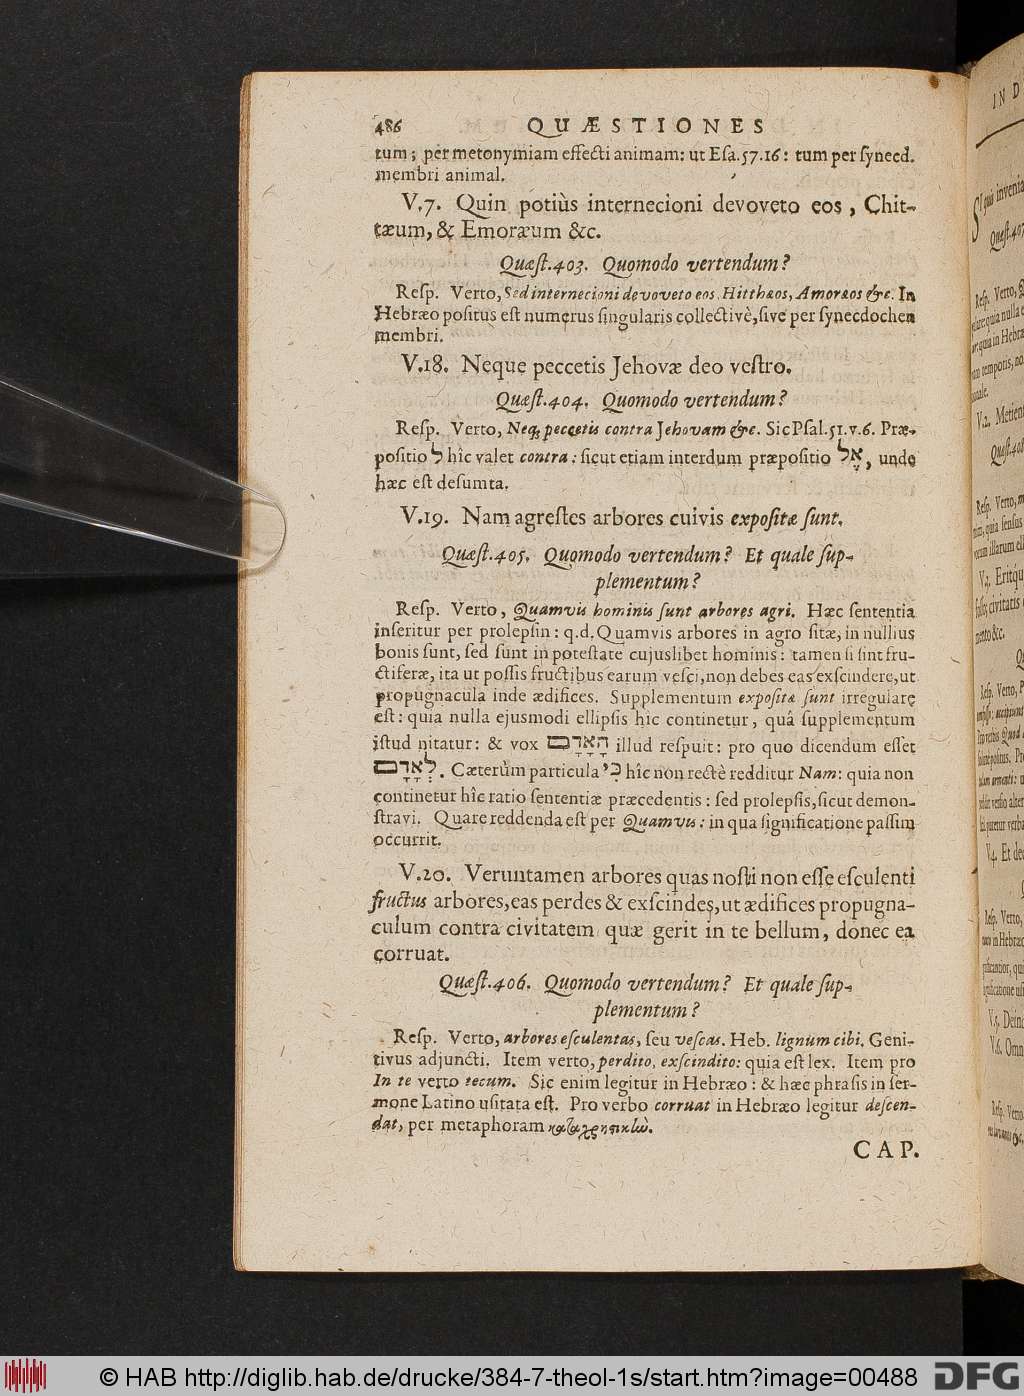 486 QUÆSTIONES
tum; per metonymiam effecti animam: ut Esa.57.16: tum per synecd.
membri animal.
V.7. Quin potiùs internecioni devoveto eos, Chit-
tæum, & Emoræum &c.
Quæst.403. Quomodo vertendum?
Resp. Verto, Sed internecioni devoveto eos, Hitthæos, Amoræos &c. In
Hebræo positus est numerus singularis collectivè, sive per synecdochen
membri.
V.18. Neque peccetis Jehovæ deo vestro.
Quæst.404. Quomodo vertendum?
Resp. Verto, Neq; peccetis contra Jehovam &c. Sic Psal.51.v.6. Præ-
positio ל hîc valet contra: sicut etiam interdum præpositio אֶל, unde
hæc est desumta.
V.19. Nam agrestes arbores cuivis expositæ sunt.
Quæst.405. Quomodo vertendum? Et quale sup-
plementum?
Resp. Verto, Quamvis hominis sunt arbores agri. Hæc sententia
inseritur per prolepsin: q.d. Quamvis arbores in agro sitæ, in nullius
bonis sunt, sed sunt in potestate cujuslibet hominis: tamen si sint fru-
ctiferæ, ita ut possis fructibus earum vesci, non debes eas exscindere, ut
propugnacula inde ædifices. Supplementum expositæ sunt irregulare
est: quia nulla ejusmodi ellipsis hîc continetur, quâ supplementum
istud nitatur: & vox הָאָדָם illud respuit: pro quo dicendum esset
לְאָדָם. Cæterùm particula כִּי hîc non rectè redditur Nam: quia non
continetur hîc ratio sententiæ præcedentis: sed prolepsis, sicut demon-
stravi. Quare reddenda est per Quamvis: in qua significatione passim
occurrit.
V.20. Veruntamen arbores quas nosti non esse esculenti
fructus arbores, eas perdes & exscindes, ut ædifices propugna-
culum contra civitatem quæ gerit in te bellum, donec ea
corruat.
Quæst.406. Quomodo vertendum? Et quale sup-
plementum?
Resp. Verto, arbores esculentas, seu vescas. Heb. lignum cibi. Geni-
tivus adjuncti. Item verto, perdito, exscindito: quia est lex. Item pro
In te verto tecum. Sic enim legitur in Hebræo: & hæc phrasis in ser-
mone Latino usitata est. Pro verbo corruat in Hebræo legitur descen-
dat, per metaphoram καταχρηστικῶς.
CAP.
IN D
Si quis invenia
Quæst.407
Resp. Verto,
V.2. Metien
Quæst.408
Resp. Verto,
V.3. Eritq́u
civitatis
mento &c.
Resp. Verto,
V.4. Et de
Resp. Verto,
V.5. Dein
V.6. Omn
Resp. Verto
© HAB http://diglib.hab.de/drucke/384-7-theol-1s/start.htm?image=00488 DFG